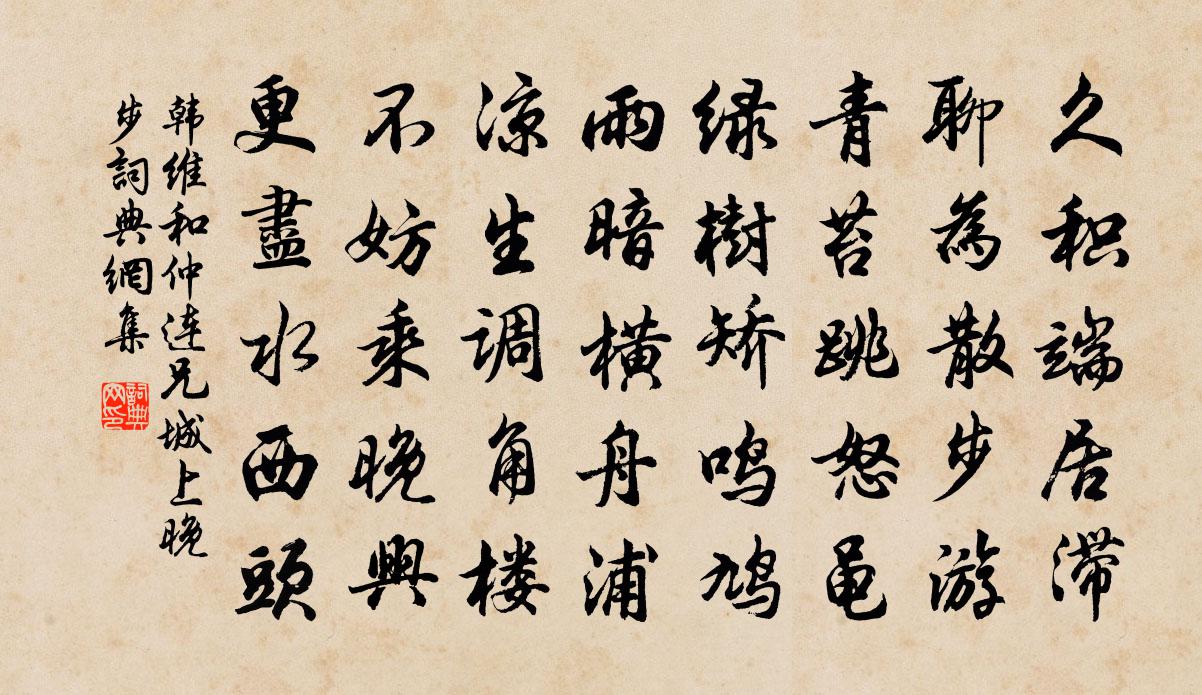 久积端居滞
聊為散步游
青苔跳怒黾
绿樹矫鸣鸠
雨暗橫舟浦
涼生调角楼
不妨乘晚興
更盡水西頭
韩维和仲連兄城上晚
步詞典網集
詞典
网印